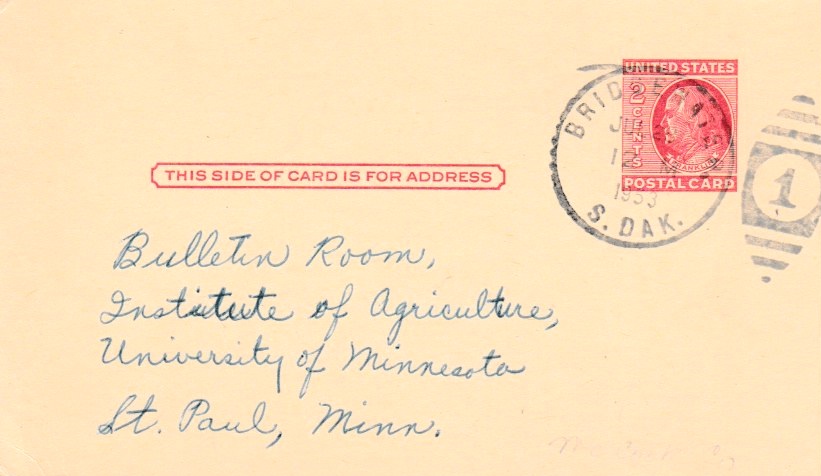 UNITED STATES
2 CENTS
FRANKLIN
POSTAL CARD
S. DAK.
1953
1
THIS SIDE OF CARD IS FOR ADDRESS
Bulletin Room,
Institute of Agriculture,
University of Minnesota
St. Paul, Minn.